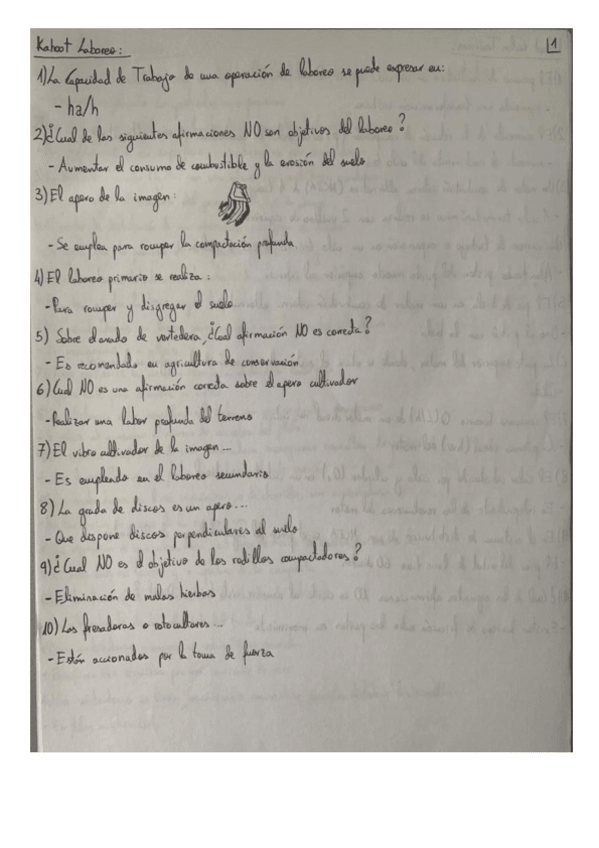 Kahoot Laboreo:
1
1) La Capacidad de Trabajo de una operación de laboreo se puede expresar en:
- ha/h
2) ¿Cual de las siguientes afirmaciones NO son objetivos del laboreo?
- Aumentar el consumo de combustible y la erosión del suelo
3) El apero de la imagen:
- Se emplea para romper la compactación profunda
4) El laboreo primario se realiza:
- Para romper y disgregar el suelo
5) Sobre el arado de vertedera, ¿Cual afirmación NO es correcta?
- Es recomendado en agricultura de conservación
6) Cual NO es una afirmación correcta sobre el apero cultivador
- Realizar una labor profunda del terreno
7) El vibro cultivador de la imagen...
- Es empleado en el laboreo secundario
8) La grada de discos es un apero...
- Que dispone discos perpendiculares al suelo
9) ¿Cual NO es el objetivo de los rodillos compactadores?
- Eliminación de malas hierbas
10) Las fresadoras o rotocultores...
- Están accionados por la toma de fuerza